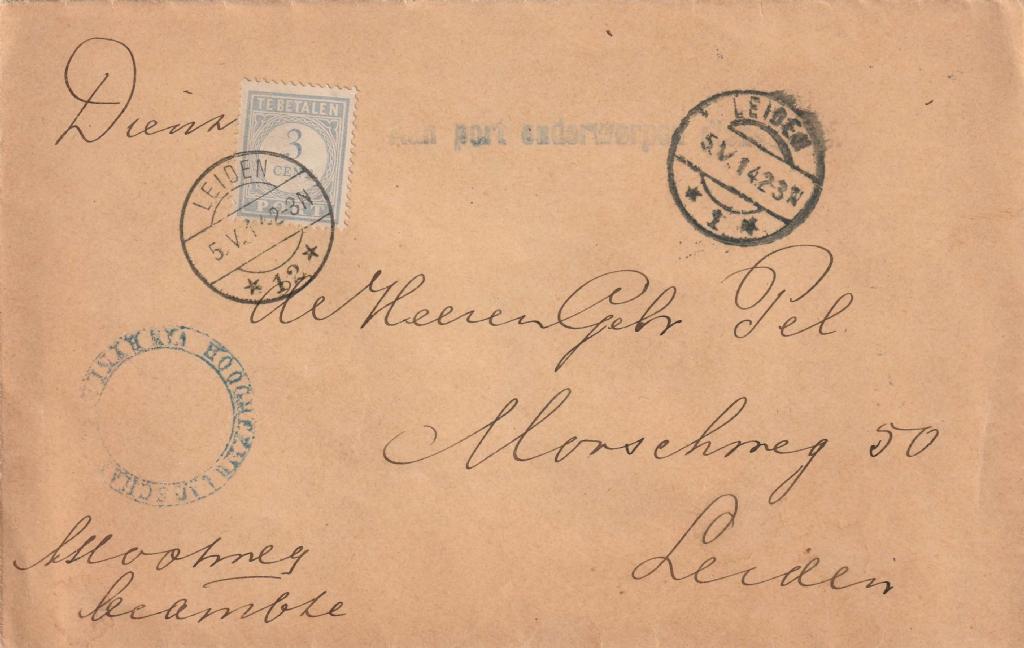 Dienst
TE BETALEN
3
CENT
PORT
Aan port onderworpen
LEIDEN
5.V.14.2-3N
1
LEIDEN
5.V.14.2-3N
12
de Heeren Gebr Pel
Morschweg 50
Leiden
HOOGHEEMRAADSCHAP VAN RIJNL
beambte